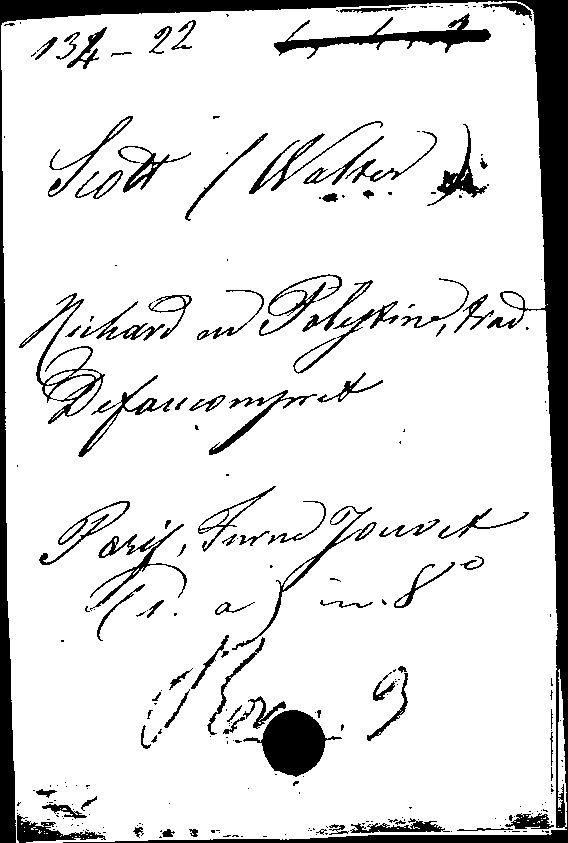 134-22
Scott (Walter)
Richard en Palestine, trad.
Defaucompret
Paris, Furne Jouvet
(s. a) in-8°
Rom. 3